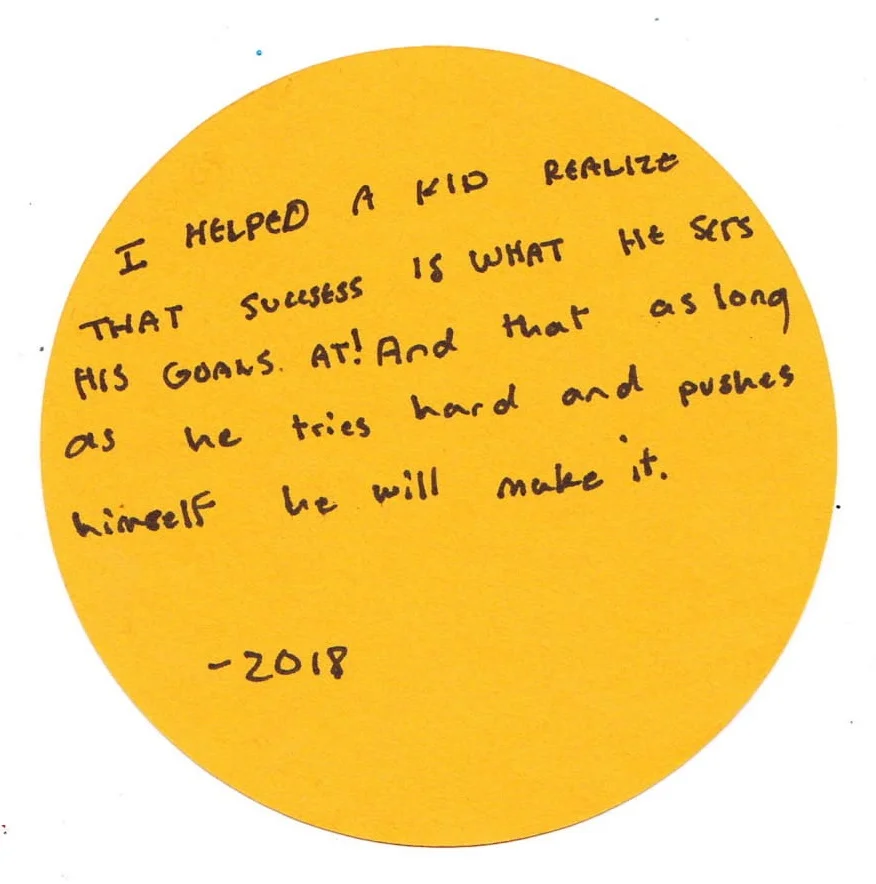 I HELPED A KID REALIZE
THAT SUCCSESS IS WHAT HE SETS
HIS GOALS. AT! And that as long
as he tries hard and pushes
himself he will make it.
-2018